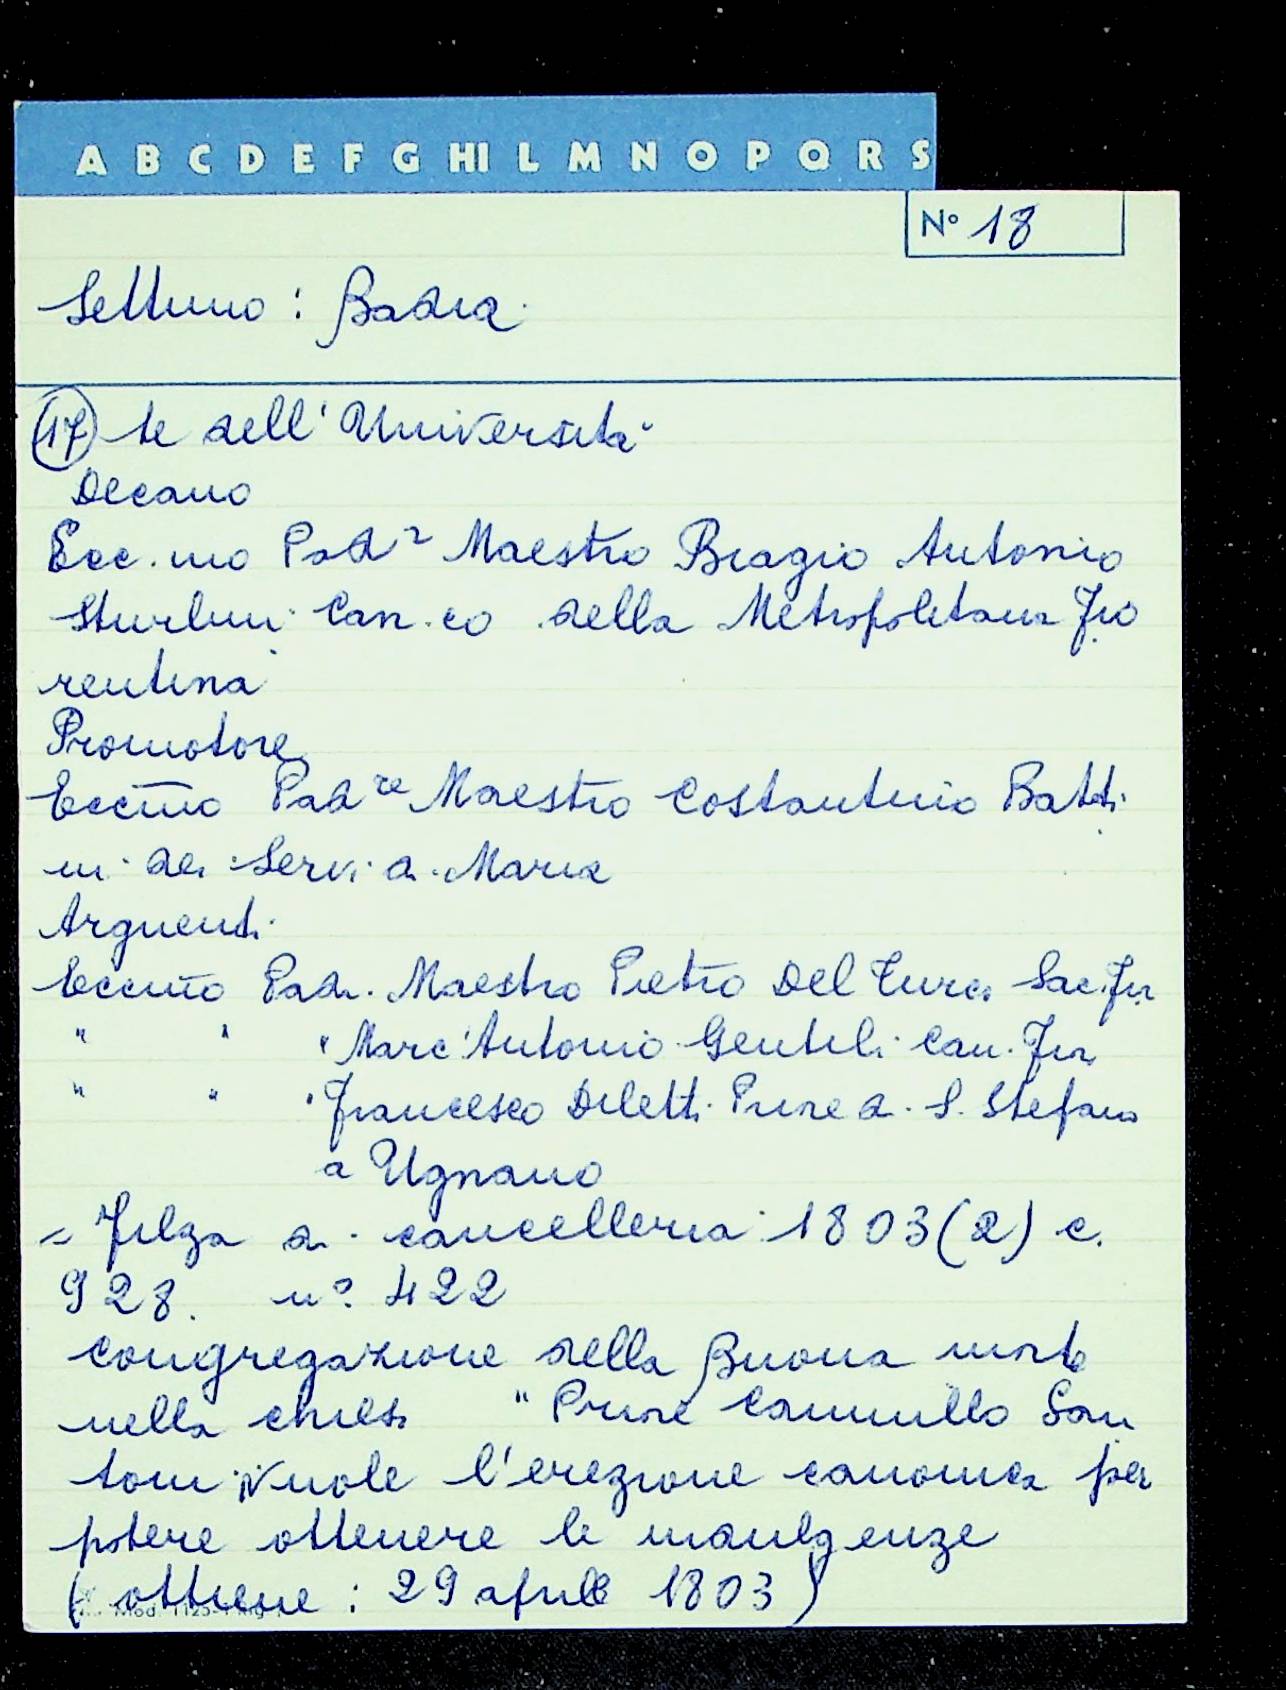 A B C D E F G HI L M N O P Q R S
N° 18
Settimo : Badia
(17) te dell'Università
Decano
Ecc.mo Pad.e Maestro Biagio Antonio
Can.co della Metropolitana Fio
rentina
Promotore
Eccmo Padre Maestro Costantino Batti
ni dei Servi di Maria
Arguenti
Eccmo Padr. Maestro Pietro Del Turco Sac. Fior
" " " Marc'Antonio Gentili Can. Fior
" " " Francesco Diletti Priore di S. Stefano
a Ugnano
= Filza di cancelleria 1803(2) c.
928. n°. 422
Congregazione della Buona morte
nella chiesa " Priore Cammillo San
toni vuole l'erezione canonica per
potere ottenere le indulgenze
(ottiene : 29 aprile 1803)